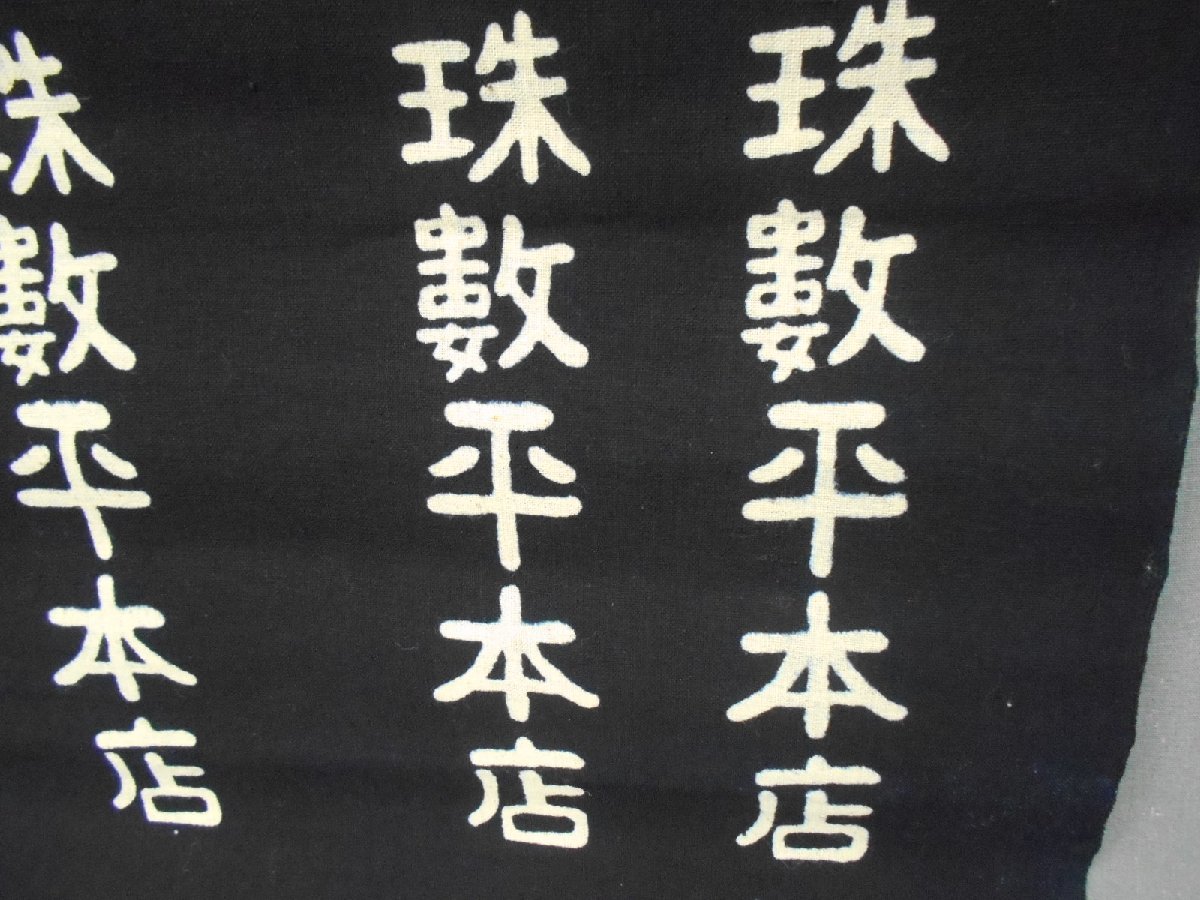 珠數平本店
珠數平本店
珠數平本店